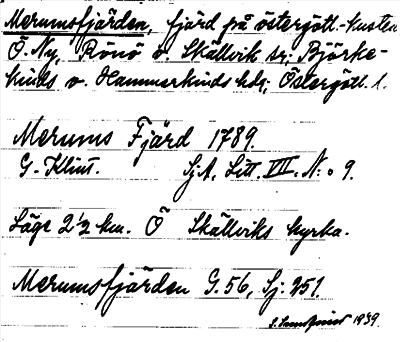 Merumsfjärden, fjärd på östergötl.-kusten
Ö. Ny, Rönö o. Skällvik sr; Björke-
kinds o. Hammarkinds hdr; Östergötl. l.
Merums Fjärd 1789.
G. Klint. Sj.A. Litt. VIII. N:o 9.
Läge 2 1/2 km. Ö Skällviks kyrka.
Merumsfjärden G.56, Sj. 251.
1939.